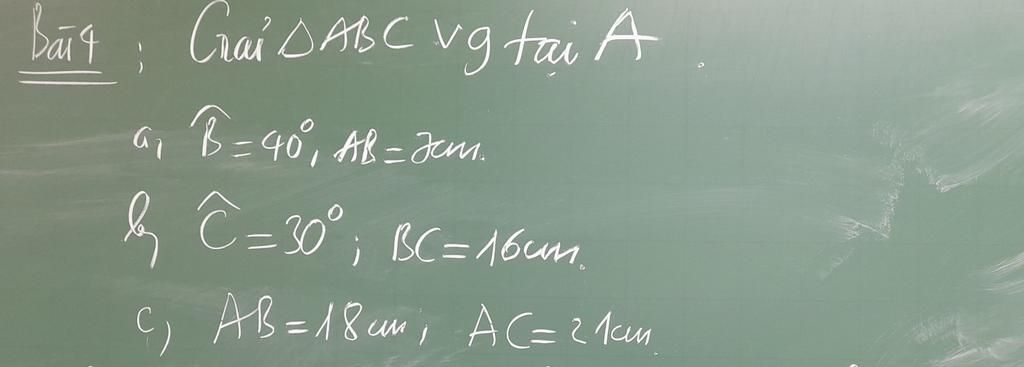 Bài 4 ; Giải △ABC vg tại A .
a, B̂ = 40°, AB = 7cm.
b, Ĉ = 30° ; BC = 16cm.
c, AB = 18cm ; AC = 21cm